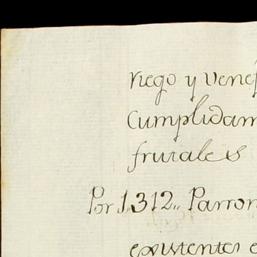 riego y venef
Cumplidam
frutales
Por 1.312,, Parron
existentes e